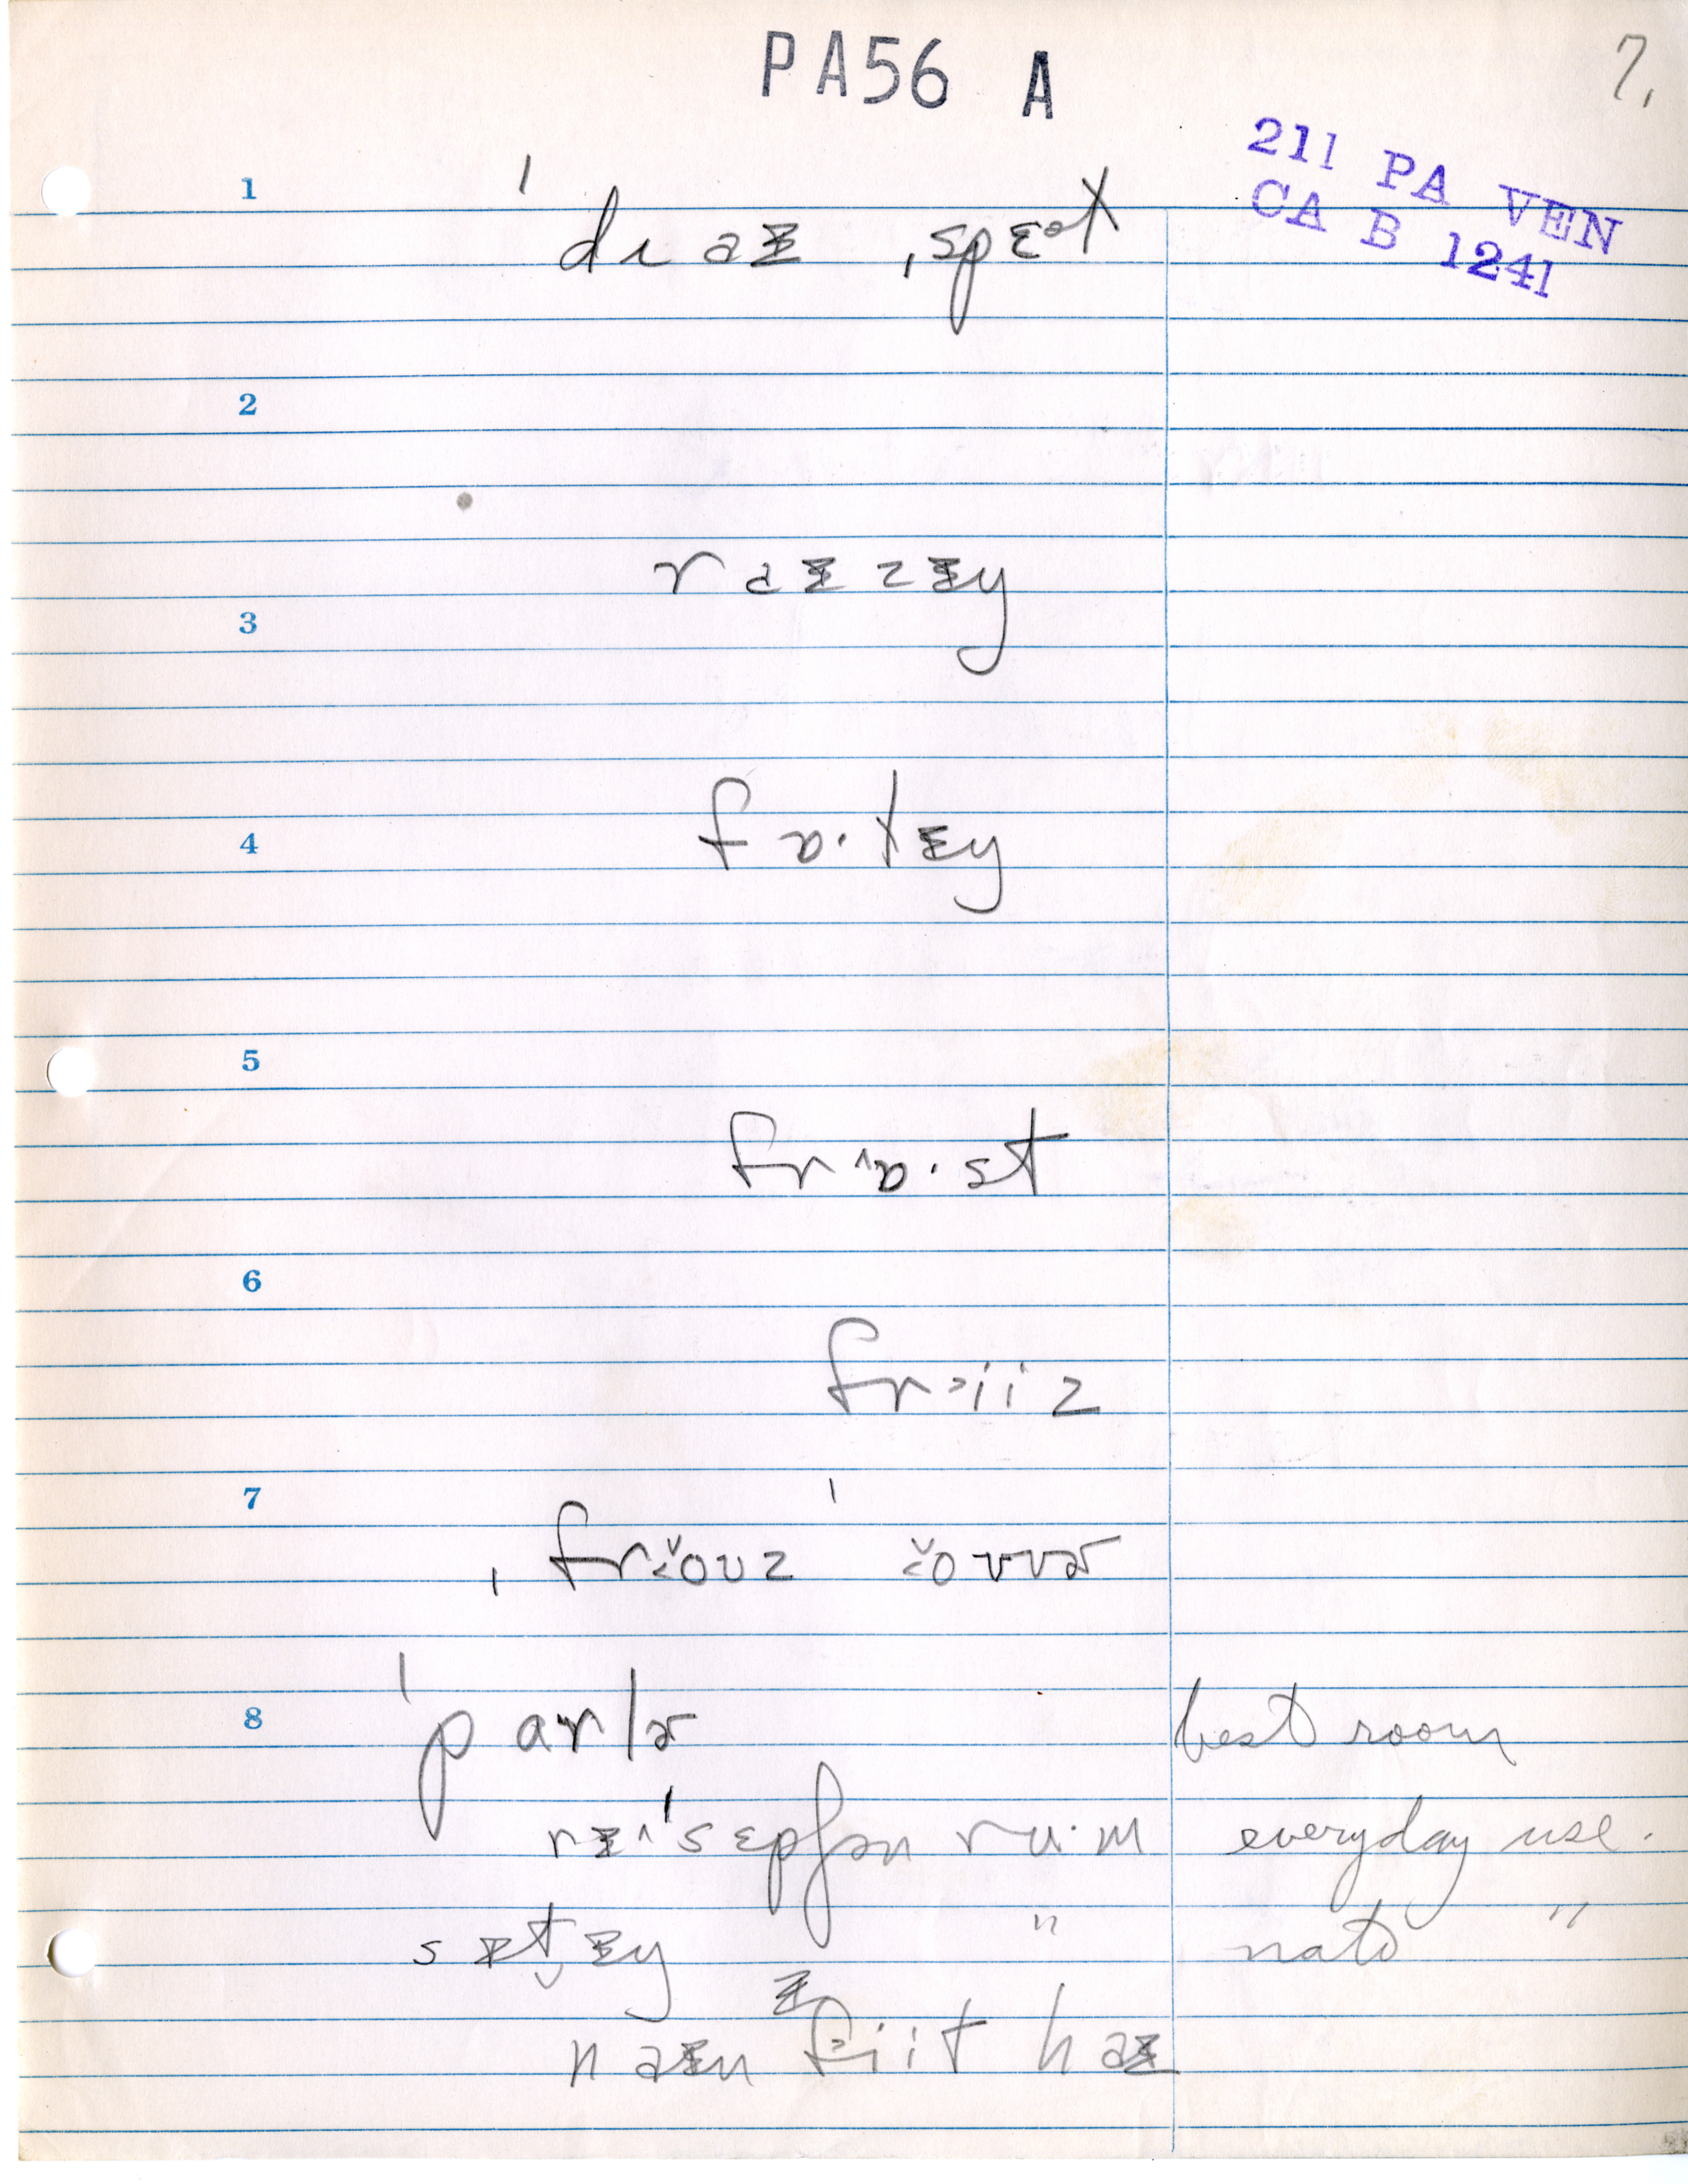 PA56 A
7.
211 PA VEN
CA B 1241
1
ˈdɹaɪ ˌspɛət
2
raɪzɪŋ
3
fɒ·tɪŋ
4
5
frɒ^·st
6
frəiiz
7
ˌfrɜ̆oʊz ˈɜ̆oʊvɚ
8
ˈparlɚ best room
rɪ^ˈsɛpʃən ru·m everyday use.
sɪt̬ɪŋ " nat̄ "
naɪn fəiit haɪ